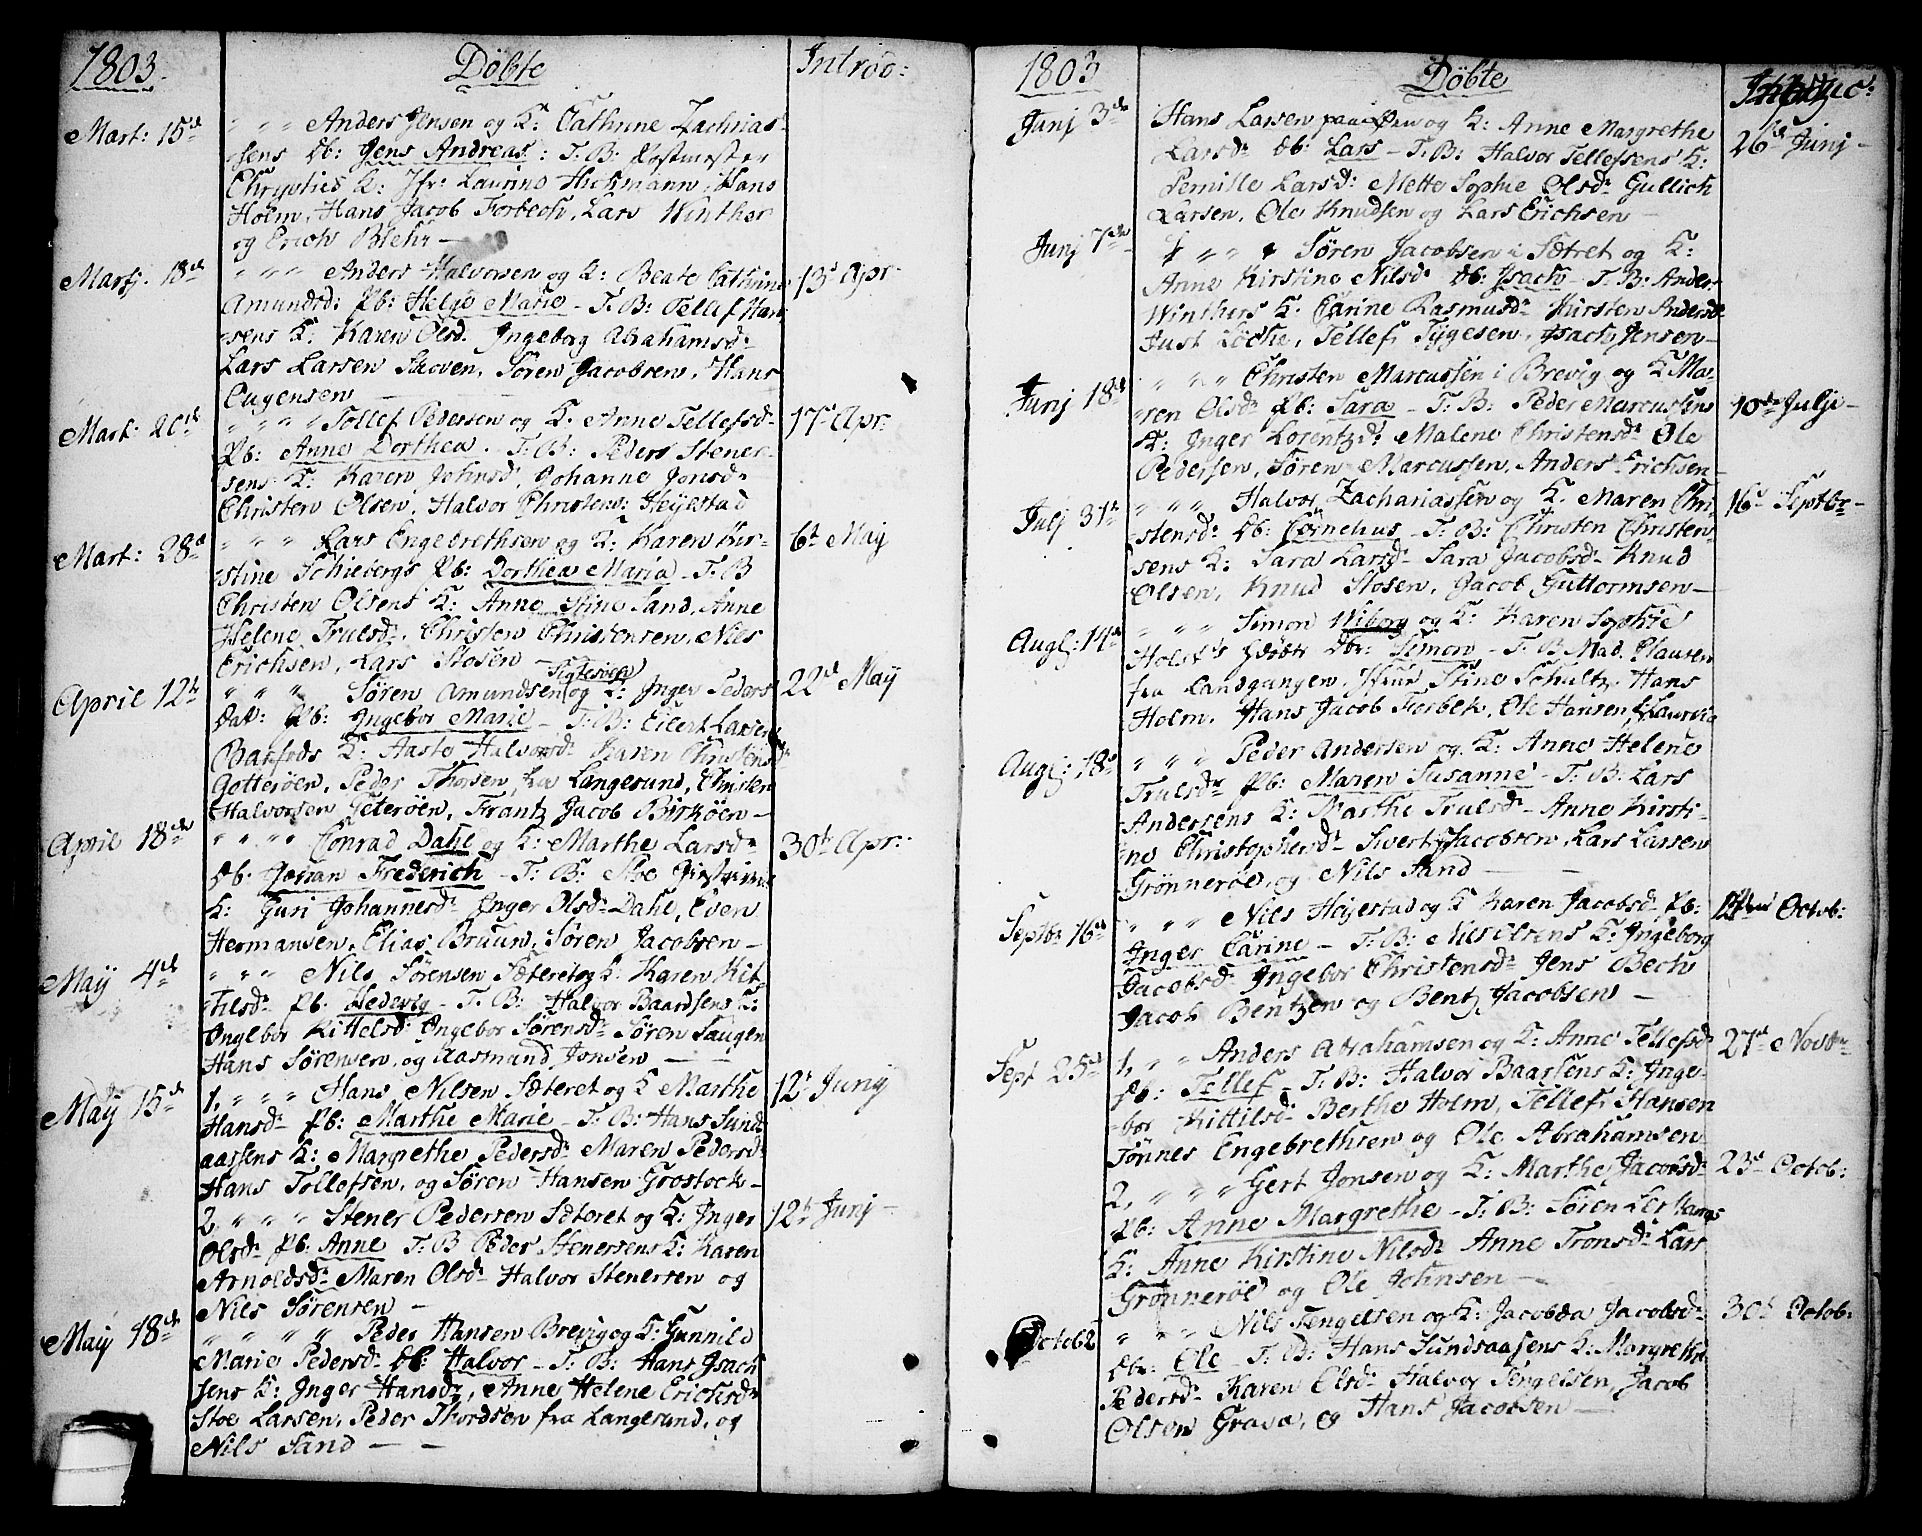 1803. Döbte Introd:
Mart: 15de " " " Anders Jensen og K: Cathrine Zachrias-
sens db: Jens Andreas: T: B: Postmester
K: Jfr: Laurine Hichmann, Hans
Holm, Hans Jacob Forbech, Lars Winther
og Erich Blehr —
Martj. 18de " " " Anders Halvorsen og K: Beate Cathrine 13de Apr
Amundsd: Pb: Helge Marie — T: B: Tellef Han-
sens K: Karen Olsd. Ingeborg Abrahamsdr
Lars Larsen, Sören Jacobsen, Hans
Eugensen —
Mart: 20de " " " Tollef Pedersen og K. Anne Tellefsdr 17de Apr:
Pb: Anne Dorthea. T: B: Peders Stener-
sens K: Karen Johnsd, Johanne Jonsdr
Christen Olsen, Halvor Christens: Heijestad
Mart: 28de " " " Lars Engebrethsen og K: Karen Kir- 6te Maij
stine Schiebergs Pb: Dorthea Maria — T: B
Christen Olsens K: Anne Stine Sand, Anne
Helene Trulsdr, Christen Christensen, Nils
Erichsen, Lars Stosen —
April 12te " " " Sören Amundsen og K: Inger Peders 22de Maij
dat: Pb: Ingebor Marie — T: B: Eilert Larsen
K: Aaste Halvorsdr Karen Christensdr
Gotteröen, Peder Thorsen, Langesund, Christen
Halvorsen Geteröen, Frantz Jacob Birköen —
April 18de " " " Conrad Dahl og K: Marthe Larsdr 30te Apr:
db. Johan Frederich — T: B: Stoe
K: Guri Johannesdr Inger Olsdr Dahl, Even
Hermansen, Elias Bruun, Sören Jacobsen —
Maij 4de " " " Nils Sörensen Sæteret og K: Karen Kit-
tilsdr Pb: Hedevig — T: B: Halvor Baardsens K:
Ingebor Kittelsdr Ingebor Sörensdr Sören Saugen
Hans Sörensen, og Aasmund Jonsen — —
Maij 15de 1, " " " Hans Nilsen Sæteret og K Marthe 12te Junij
Hansdr Pb: Marthe Marie — T: B: Hans Sund-
aasens K: Margrethe Pedersdr Maren Pedersdr
Hans Tollefsen, og Sören Hansen Grostock —
2, " " " Stener Pedersen Sæteret og K: Inger 12te Junj —
Olsdr Pb: Anne T: B Peder Stenersens K: Karen
Arnoldsdr Maren Olsdr Halvor Stenersen og
Nils Sörensen —
Maij 18de " " " " Peder Hansen Brevig og K: Gunnild
Marie Pedersdr db: Halvor — T: B: Hans Isach
sens K: Inger Hansdr, Anne Helene Erichsdr
Stoe Larsen, Peder Thordsen fra Langesund, og
Nils Sand — —
1803 Döbte
Junj 3de Hans Larsen paa Øen og K: Anne Margrethe
Larsdr db: Lars — T: B: Halvor Tellefsens K: 26de Junj —
Pernille Larsd: Mette Sophie Olsdr Gullich
Larsen, Ole Knudsen og Lars Erichsen —
Junj 7de " " Sören Jacobsen i Sætret og K:
Anne Kirstine Nilsdr db: Isach — T: B: Ander-
Winthers K: Carine Rasmusdr Kirsten Andersdr
Just Löche, Tellef Tygesen, Isach Jensen —
Junj 18de " " " Christen Marcussen i Brevig og K Ma-
ren Olsdr Pb: Sara — T: B: Peder Marcussens 10de Julji —
K: Inger Lorentzdr Malene Christensdr Ole
Pedersen, Sören Marcussen, Anders Erichsen —
Julj 31te " " " Halvor Zachariassen og K. Maren Chri- 16de Septbr —
stensdr db: Cornelius — T: B: Christen Christen-
sens K: Sara Larsdr Sara Jacobsdr Knud
Olsen, Knud Stosen, Jacob Guttormsen —
Augl: 14de " " " Simon Wiborg og K: Karen Sophie
Holst's db: Simon — T: B Mad. Clausen
fra Landgangen, Jfrur Stine Schultz, Hans
Holm, Hans Jacob Forbek, Ole Hansen
Augl: 18de " " " Peder Andersen og K: Anne Helene
Trulsdr Pb: Maren Susanne — T: B: Lars
Andersens K: Marthe Trulsdr Anne Kirsti-
ne Christophersdr Sivert Jacobsen, Lars Larsen
Grönneröe, og Nils Sand — —
Septbr 16de " " " Nils Heijestad og K Karen Jacobsdr Pb: Octob:
Inger Carine — T: B: Nils Olsens K: Ingeborg
Jacobsdr Ingebor Christensdr Jens Bech
Jacob Bentzen og Bentz Jacobsen —
Sept 25de 1, " " Anders Abrahamsen og K: Anne Tellefsdr 27de Novbr
db: Tellef — T: B: Halvor Baarsens K: Inge-
bor Kittilsdr Berthe Holm, Tellef Hansen
Tönnes Engebrethsen og Ole Abrahamsen
2, " " " Gert Jonsen og K: Marthe Jacobsdr 23de Octob:
Pb: Anne Margrethe — T: B: Sören
K: Anne Kirstine Nilsdr Anne Tronsdr Lars
Grönneröe og Ole Johnsen —
Octob 2 " " " Nils Tengelsen og K: Jacobæa Jacobsdr 30te Octob:
db: Ole — T: B: Hans Sundsaasens K: Margrethe
Pedersdr Karen Olsdr Halvor Tengelsen, Jacob
Olsen Grava, og Hans Jacobsen —